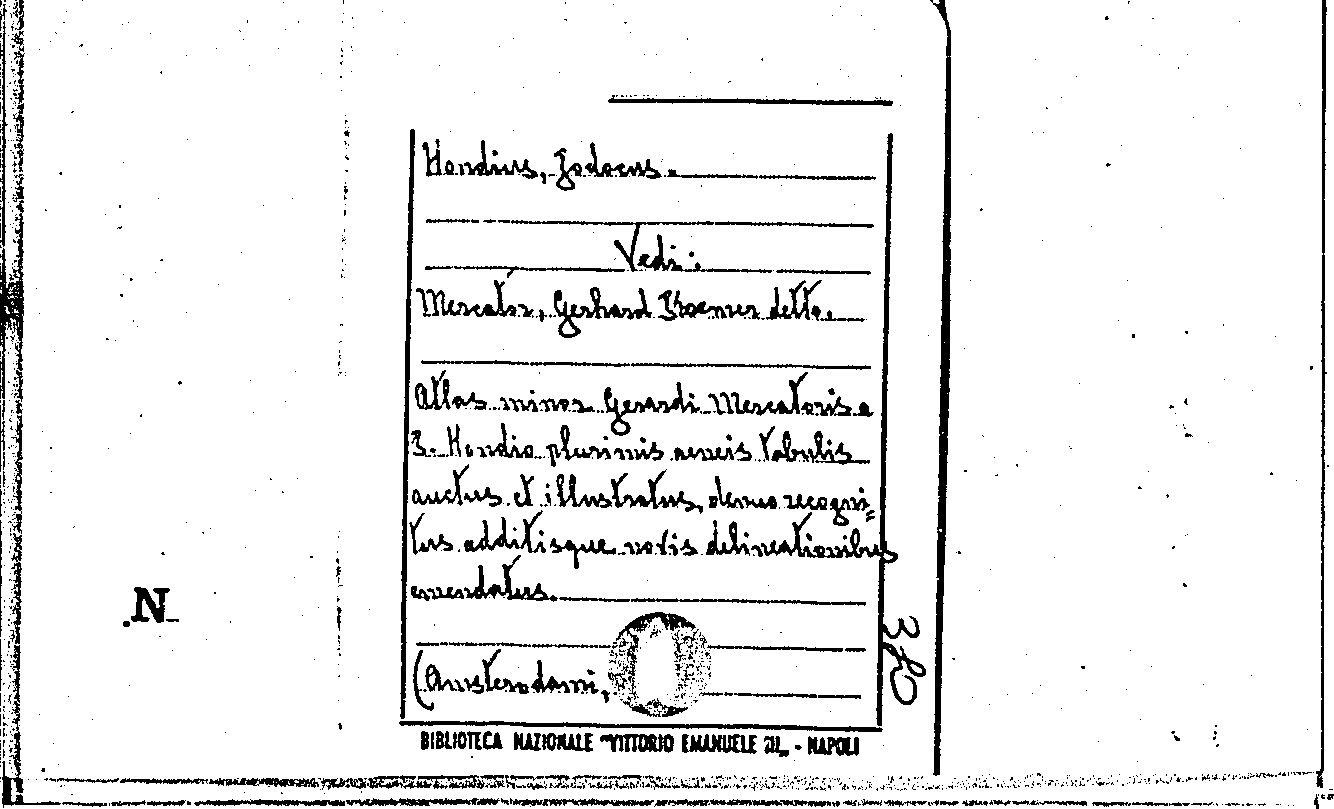 Hondius, Jodocus.
Vedi:
Mercator, Gerhard Kroemer detto.
Atlas minor Gerardi Mercatoris a
J. Hondio plurimis aeneis tabulis
auctus et illustratus, denuo recogni=
tus additisque novis delineationibus
emendatus.
(Amsterodami,
BIBLIOTECA NAZIONALE "VITTORIO EMANUELE III" - NAPOLI
N
380